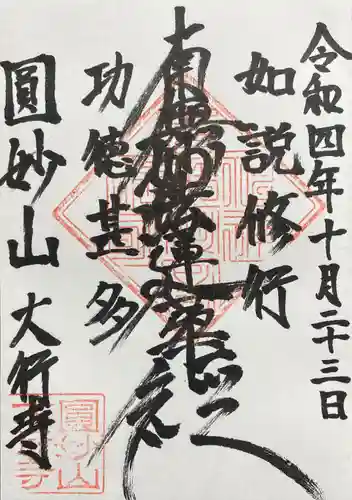 令和四年十月二十三日
如説修行
南無妙法蓮華経
功徳甚多
圓妙山 大行寺
圓妙山